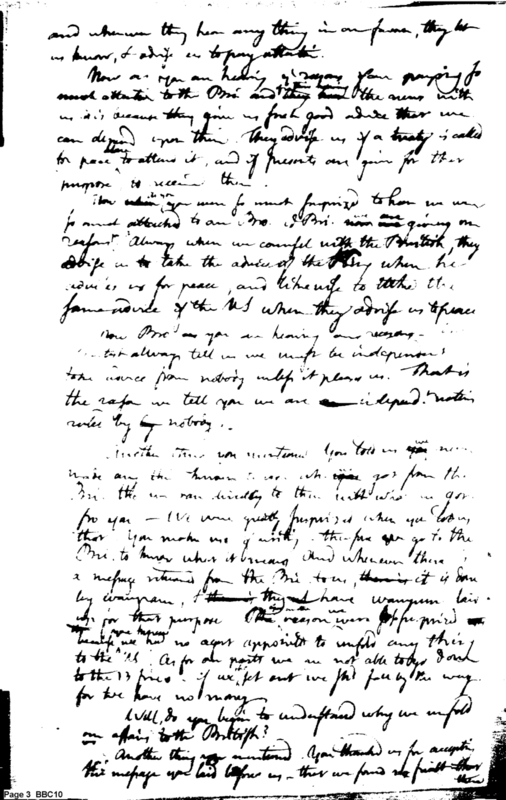 and whenever they hear any thing in our favor, they let
us know, & advise us to pay attention.
Now as you are hearing our reasons of our paying so
much attention to the Bri. and the news with
us it is because they give us fresh good advice that we
can depend upon them. They advise us if a treaty is called
for peace to attend it, and if presents are given for that
purpose to receive them.
Now you were so much surprized to hear we were
so much attached to our Bro. Bri. now we are giving our
reasons. Always when we counsel with the British, they
advise us to take the advice of the King when he
advises us for peace, and likewise to take the
same advice of the US when they advise us to peace
Now Bro as you are hearing our reasons
always tell us we must be independent
take advice from nobody unless it please us. That is
the reason we tell you we are independ. nation
ruled by nobody.
Another thing you mentioned. You told us you
made any thing known to us we got from the
Bri. then we ran directly to them with what we got
from you — We were greatly surprized when you told us
that. You make use of writing therefore go to the
Bri. to know what it means. And whenever there is
a message returned from the Bri to us, it is done
by wampum, & they have wampum
for that purpose. The reason we were so surprized
because we had no agent appointed to unfold any thing
to the US. As for our parts we are not able to go down
to the 13 fires. if we set out we shd fall by the way
for we have no money
Well, do you begin to understand why we unfold
our affairs to the British?
Another thing you mentioned. You thanked us for accepting
the message you laid before us — that we found no fault
there
Page 3 BBC10